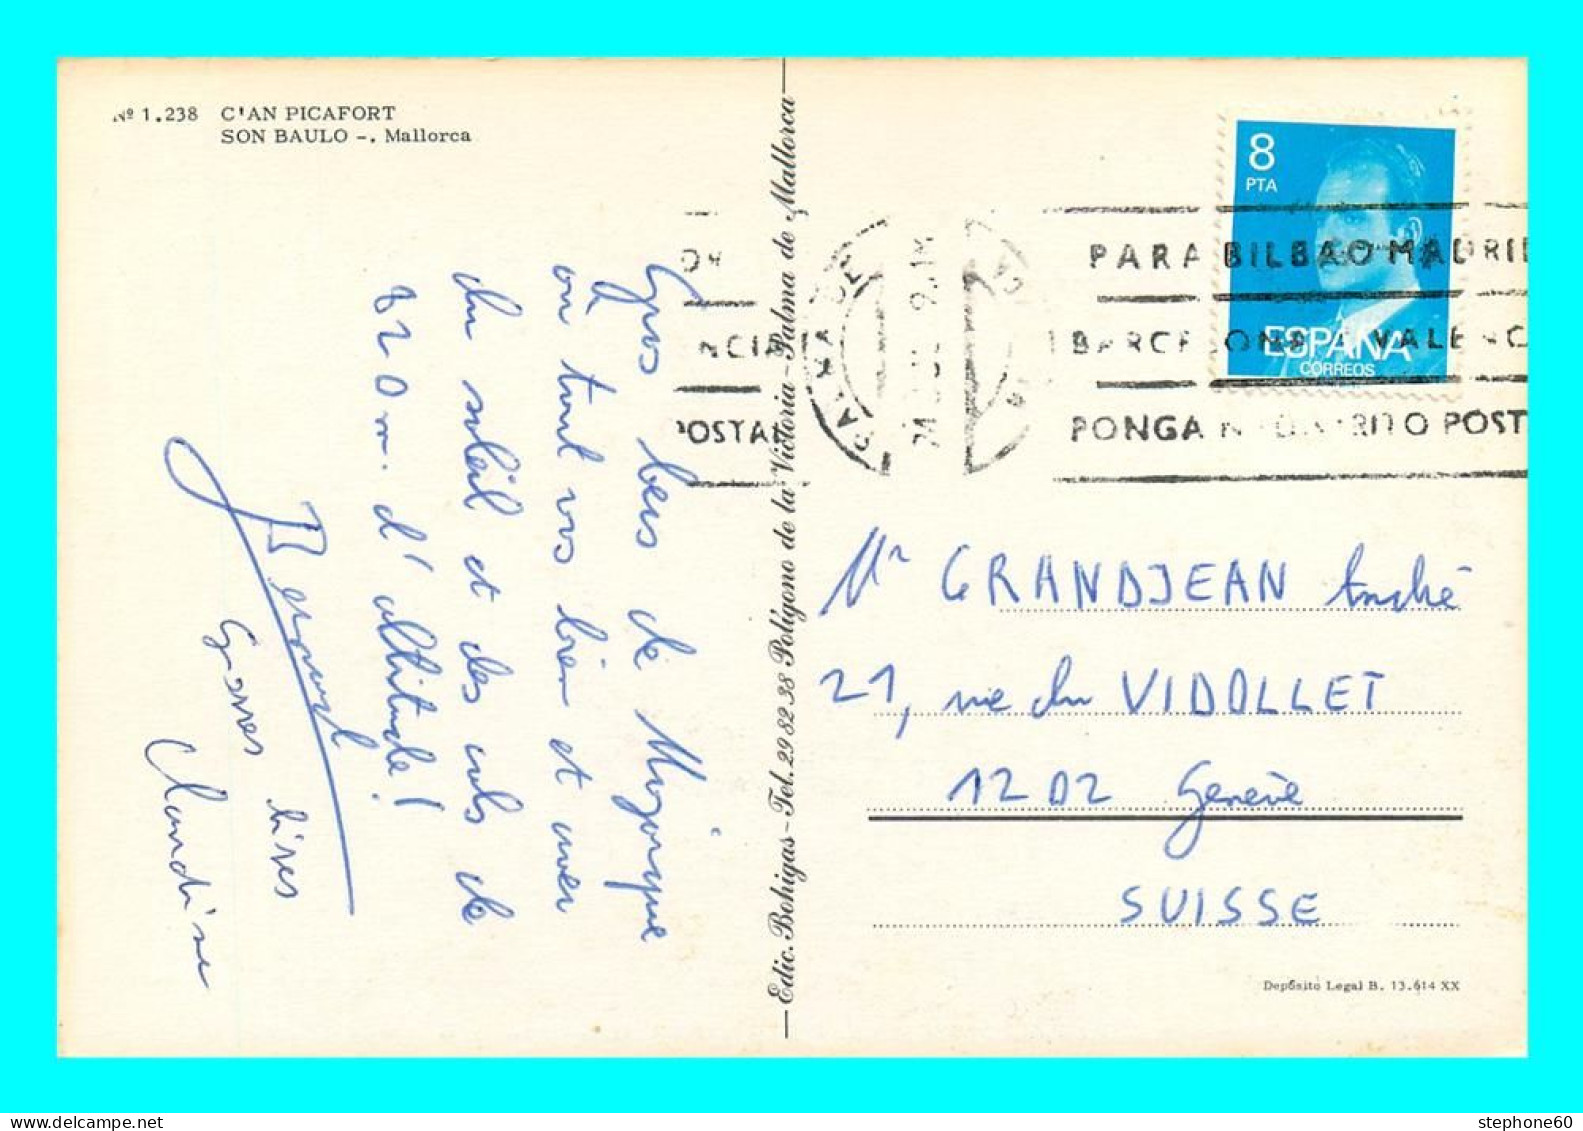 Nº 1.238 C'AN PICAFORT
SON BAULO -. Mallorca
Gros becs de Majorque
où tout va bien et avec
du soleil et des cols de
820 m. d'altitude!
Bernard
Grosses bises
Claudine
Edic. Bohigas - Tel. 29 82 38 Polígono de la Victoria - Palma de Mallorca
8
PTA
ESPAÑA
CORREOS
PARA BILBAO MADRID
BARCELONA VALENC
PONGA N DISTRITO POST
NCIA
POSTAL
PALMA DE
Mr GRANDJEAN André
21, rue du VIDOLLET
1202 Genève
SUISSE
Depósito Legal B. 13.614 XX
stephone60